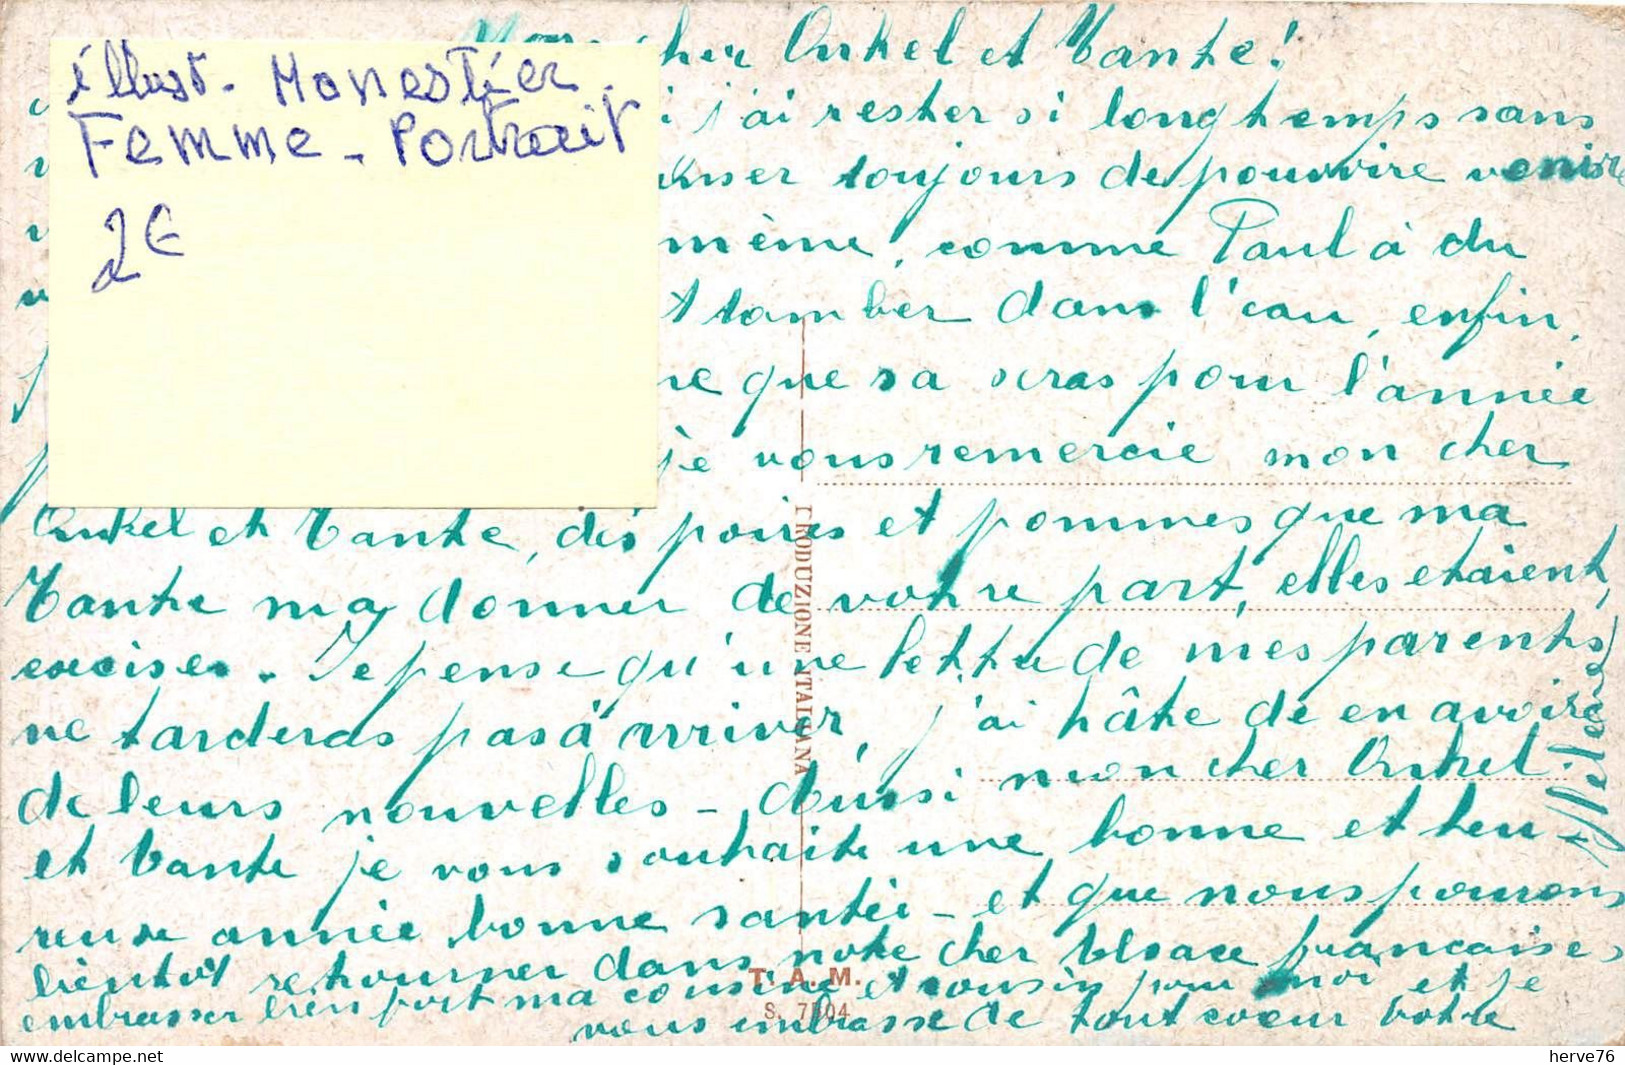 illust. Monestier.
Femme - Portrait
2€
Mon cher Onkel et Tante!
j'ai rester si longtemps sans
toujours de pouvoire venire
même, comme Paul à du
tomber dans l'eau, enfin,
que sa seras pour l'année
je vous remercie mon cher
Onkel et Tante, dès poires et pommes que ma
Tante ma donner de votre part, elles etaient
excises. Je pense qu'une lettre de mes parents
ne tarderas pas à arriver, j'ai hâte de en avoire
de leurs nouvelles - Aussi mon cher Onkel
et Tante je vous souhaite une bonne et heu
reuse année bonne santéé - et que nous pourrons
bientôt retourner dans notre cher Alsace francaise,
embrasser bien fort ma cousine et cousin pour moi et je
vous embrasse de tout coeur votre
Hélène
PRODUZIONE ITALIANA
T.A.M.
S. 7504
herve76